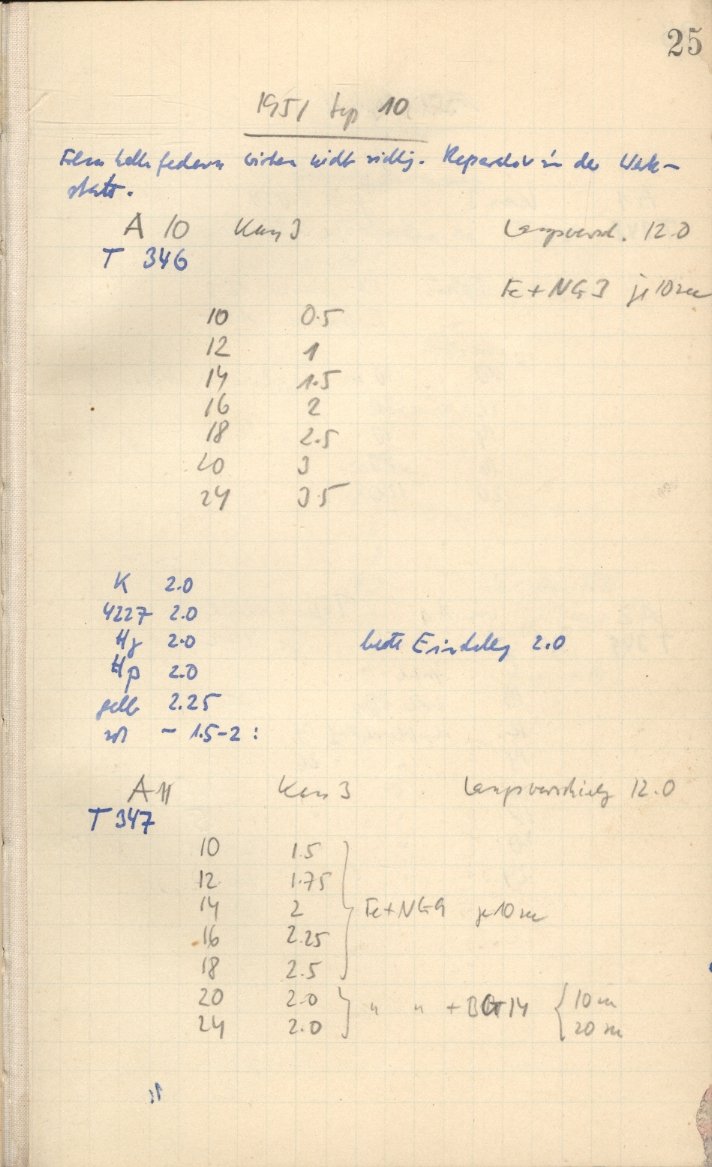 25
1951 Sep 10
federn wirken nicht richtig. Reparatur in der Werk-
statt.
A 10 Kam 3 Längsversch. 12.0
T 346
Fe + NG3 je 10 sec
10 0.5
12 1
14 1.5
16 2
18 2.5
20 3
24 3.5
K 2.0
4227 2.0
Hγ 2.0 beste Einstellg 2.0
Hβ 2.0
gelb 2.25
rot ~ 1.5-2 :
A 11 Kam 3 Längsverschiebg 12.0
T 347
10 1.5
12 1.75
14 2 Fe + NG9 je 10 sec
16 2.25
18 2.5
20 2.0 " " + BG14 { 10 sec
24 2.0 20 sec